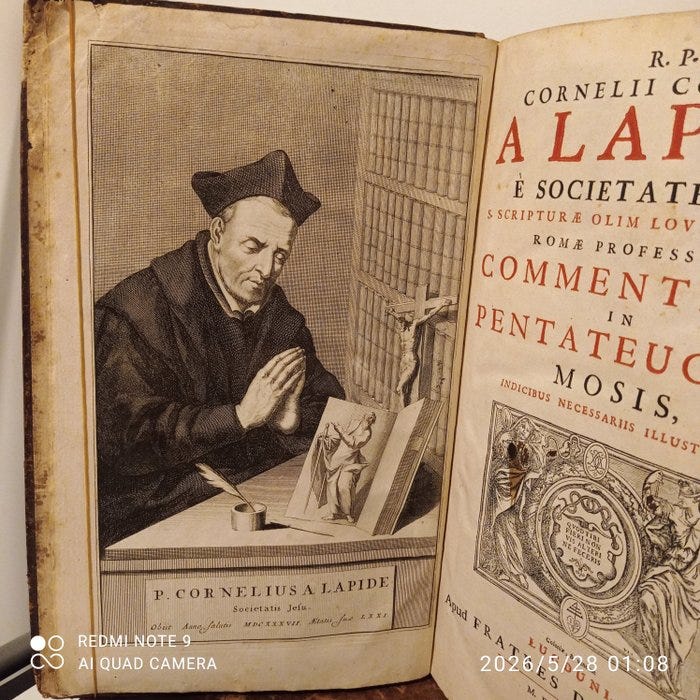 P. CORNELIUS A LAPIDE
Societatis Jesu.
Obiit Anno Salutis MDCXXXVII. Ætatis suæ LXXI.
R. P.
CORNELII CO
A LAP
È SOCIETATE
S. SCRIPTURÆ OLIM LOV
ROMÆ PROFESS
COMMENT
IN
PENTATEUC
MOSIS,
INDICIBUS NECESSARIIS ILLUST
QUOD TIBI
FIERI NON
VIS ALTERI
NE FECERIS
LUGDUNI
Apud FRATRES D
M.
REDMI NOTE 9
AI QUAD CAMERA
2026/5/28 01:08